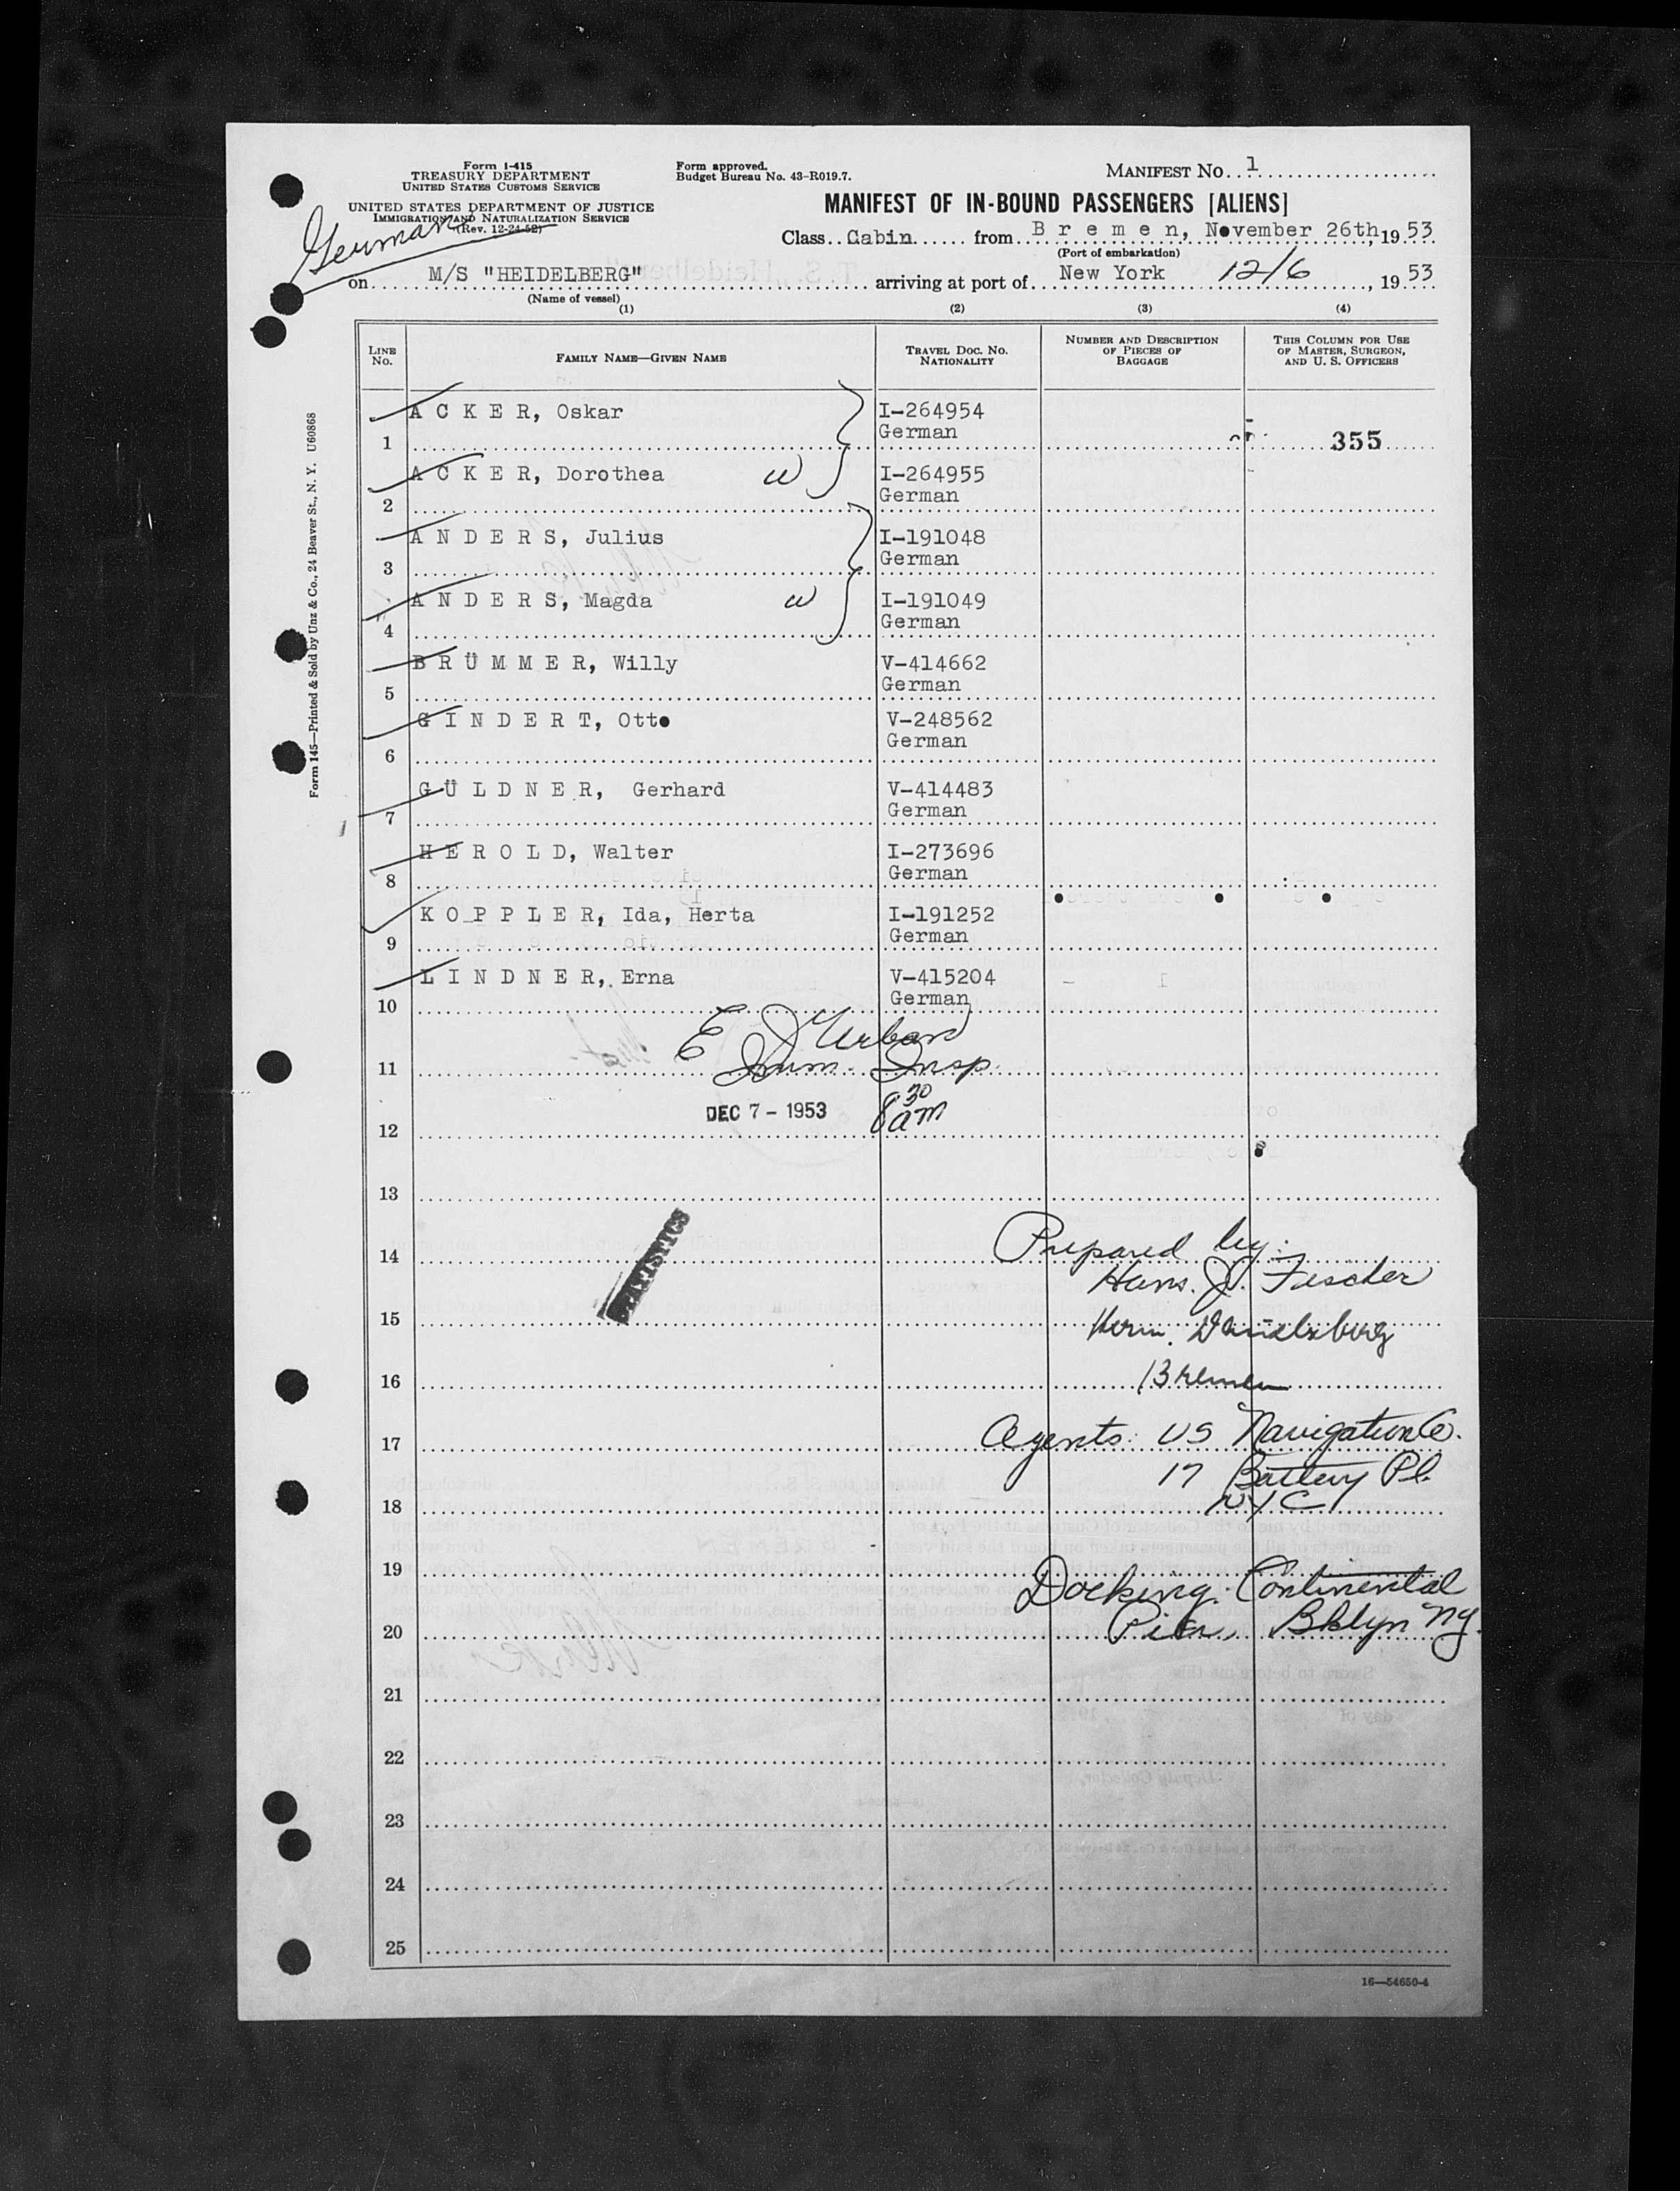 Form I-415
TREASURY DEPARTMENT
UNITED STATES CUSTOMS SERVICE
UNITED STATES DEPARTMENT OF JUSTICE
IMMIGRATION AND NATURALIZATION SERVICE
(Rev. 12-24-52)
Form approved.
Budget Bureau No. 43-R019.7.
MANIFEST NO. 1
MANIFEST OF IN-BOUND PASSENGERS [ALIENS]
German
Class Cabin from Bremen, November 26th, 19 53
(Port of embarkation)
on M/S "HEIDELBERG" arriving at port of New York 12/6, 19 53
(Name of vessel)
(1) (2) (3) (4)
LINE No. FAMILY NAME—GIVEN NAME TRAVEL DOC. NO. NATIONALITY NUMBER AND DESCRIPTION OF PIECES OF BAGGAGE THIS COLUMN FOR USE OF MASTER, SURGEON, AND U. S. OFFICERS
A C K E R, Oskar I-264954
1 German 355
A C K E R, Dorothea W I-264955
2 German
A N D E R S, Julius I-191048
3 German
A N D E R S, Magda W I-191049
4 German
B R Ü M M E R, Willy V-414662
5 German
G I N D E R T, Otto V-248562
6 German
G Ü L D N E R, Gerhard V-414483
7 German
H E R O L D, Walter I-273696
8 German
K O P P L E R, Ida, Herta I-191252
9 German
L I N D N E R, Erna V-415204
10 German
E J Urban
11 Imm. Insp.
DEC 7 - 1953 8 30 am
12
13
STATISTICS
14 Prepared by:
Hans. J. Fischer
15 Herm. Danelzberg
16 Bremen
17 Agents: US Navigation Co.
17 Battery Pl.
18 NYC
19 Docking: Continental
20 Pier, Bklyn NY.
21
22
23
24
25
16—54650-4
Form 145—Printed & Sold by Unz & Co., 24 Beaver St., N. Y. U60868